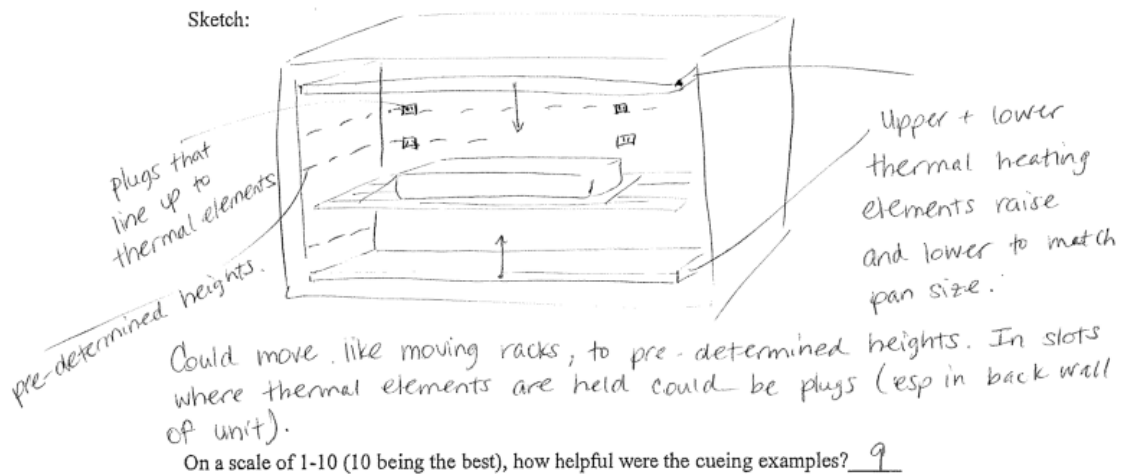 Sketch:
plugs that
line up to
thermal elements
pre-determined heights.
Upper + lower
thermal heating
elements raise
and lower to match
pan size.
Could move, like moving racks, to pre-determined heights. In slots
where thermal elements are held could be plugs (esp in back wall
of unit).
On a scale of 1-10 (10 being the best), how helpful were the cueing examples? 9